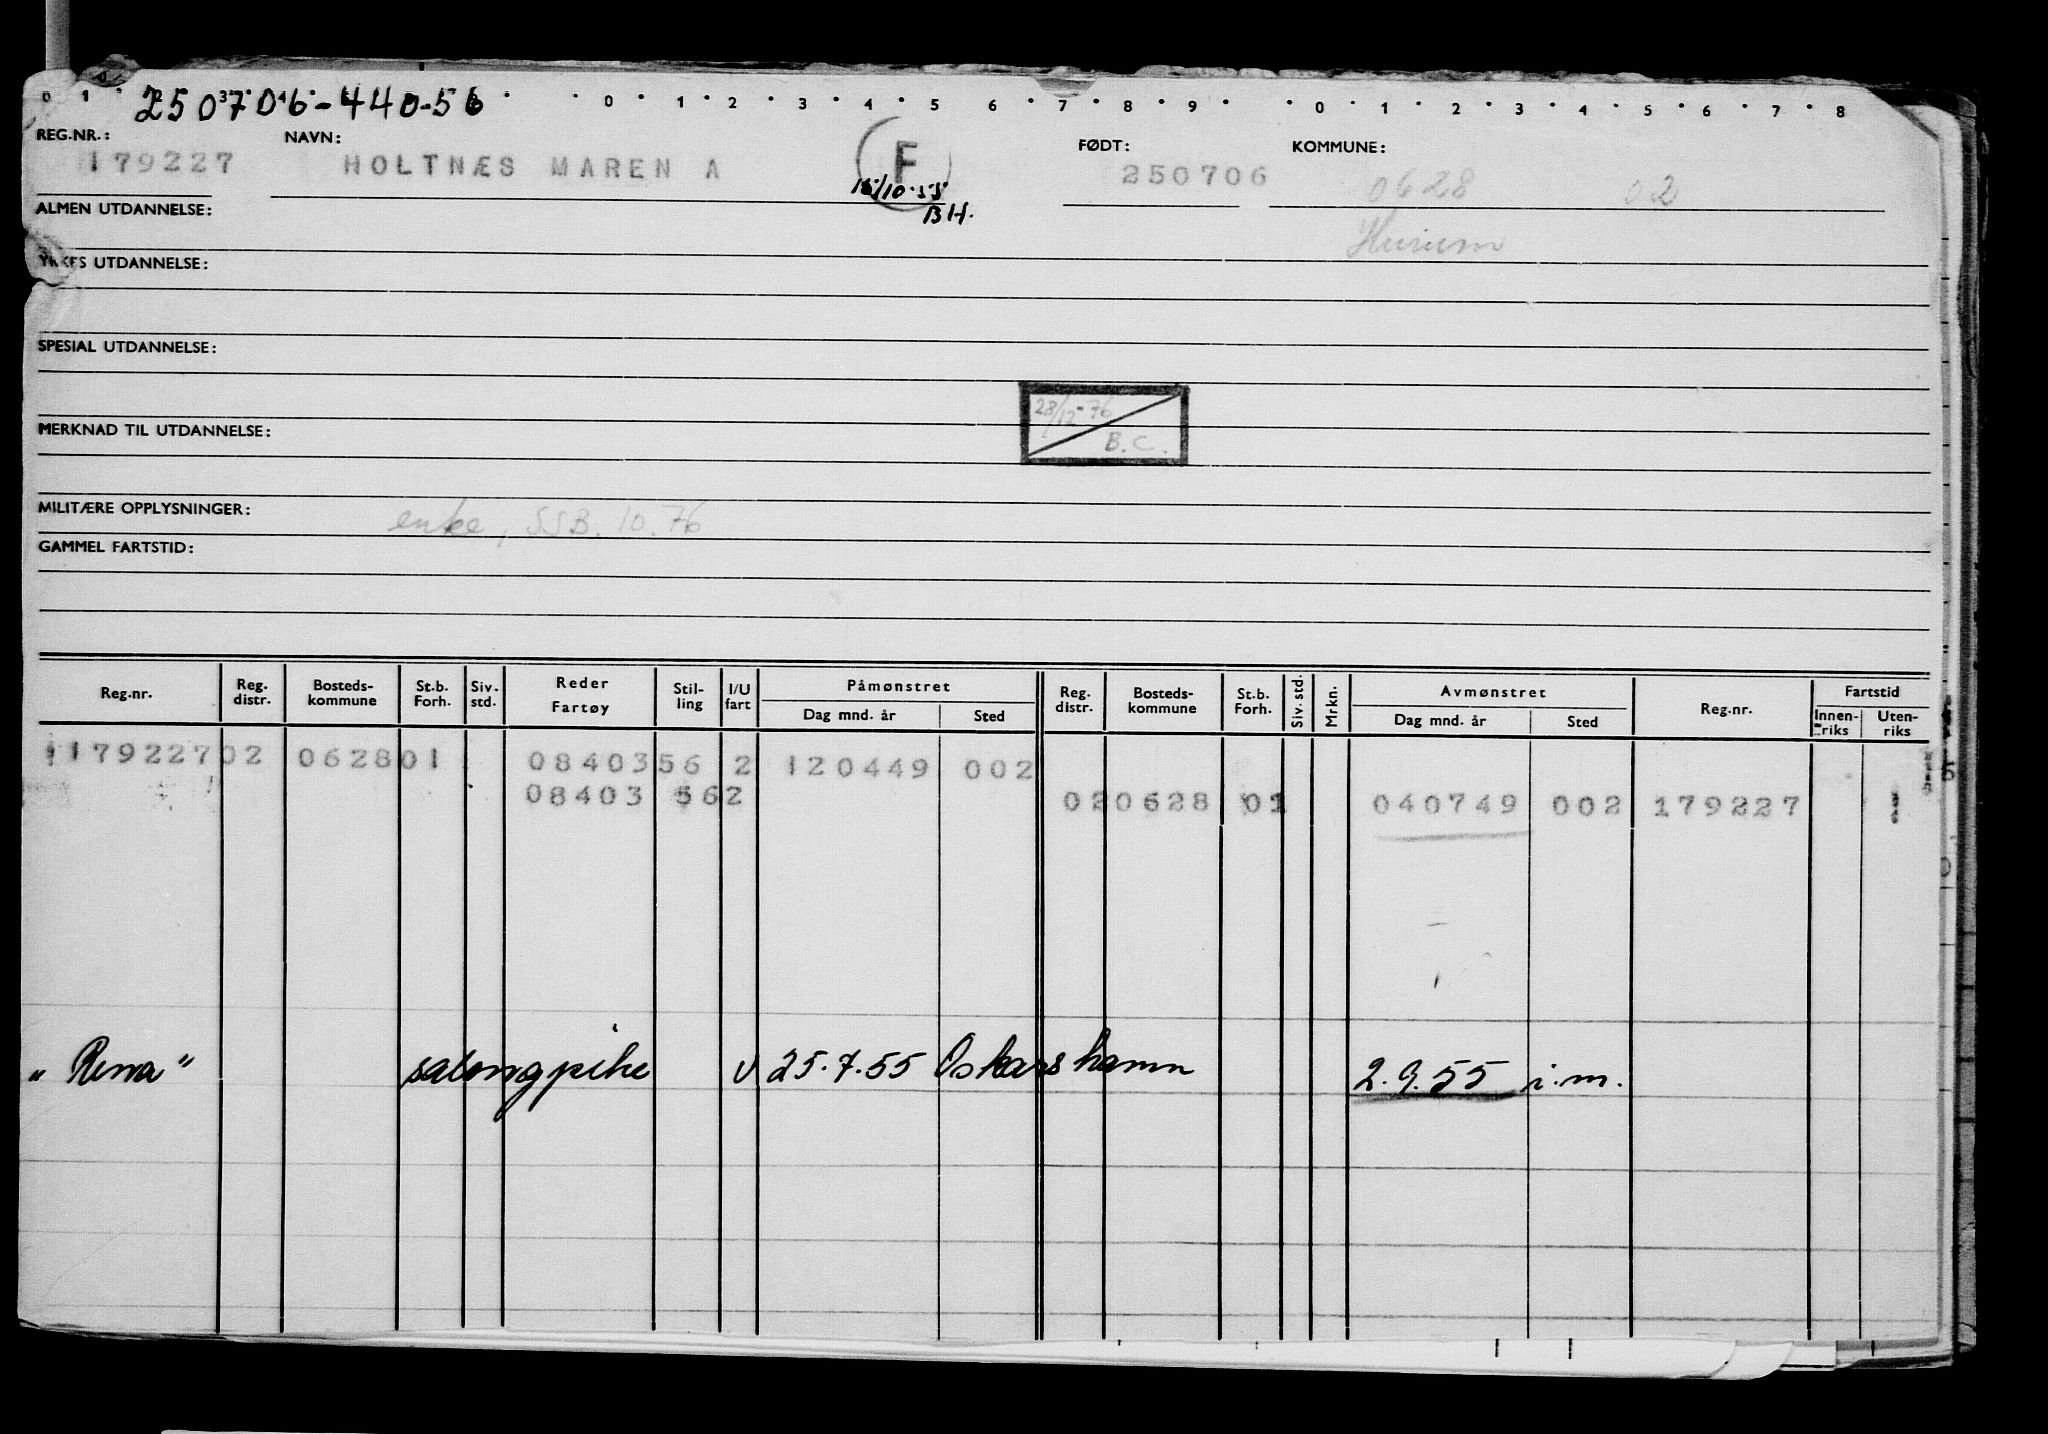 250706-440-56
0 1 3 0 1 2 3 4 5 6 7 8 9 0 1 2 3 4 5 6 7 8
REG.NR.: NAVN: F FØDT: KOMMUNE:
179227 HOLTNÆS MAREN A 250706 0628 02
15/10.55
BH.
ALMEN UTDANNELSE:
Hurum
YRKES UTDANNELSE:
SPESIAL UTDANNELSE:
28/12-76
B.C.
MERKNAD TIL UTDANNELSE:
MILITÆRE OPPLYSNINGER: enke, SSB. 10.76
GAMMEL FARTSTID:
Reg.nr. Reg. distr. Bosteds-kommune St.b. Forh. Siv. std. Reder Fartøy Stil-ling I/U fart Påmønstret Dag mnd. år Sted Reg. distr. Bosteds-kommune St.b. Forh. Siv. std. Mrkn. Avmønstret Dag mnd. år Sted Reg.nr. Fartstid Innen-riks Uten-riks
179227 02 0628 01 08403 56 2 120449 002
08403 56 2 02 0628 01 040749 002 179227
"Rena" salongpike U 25.7.55 Oskarshamn 2.9.55 i.m.